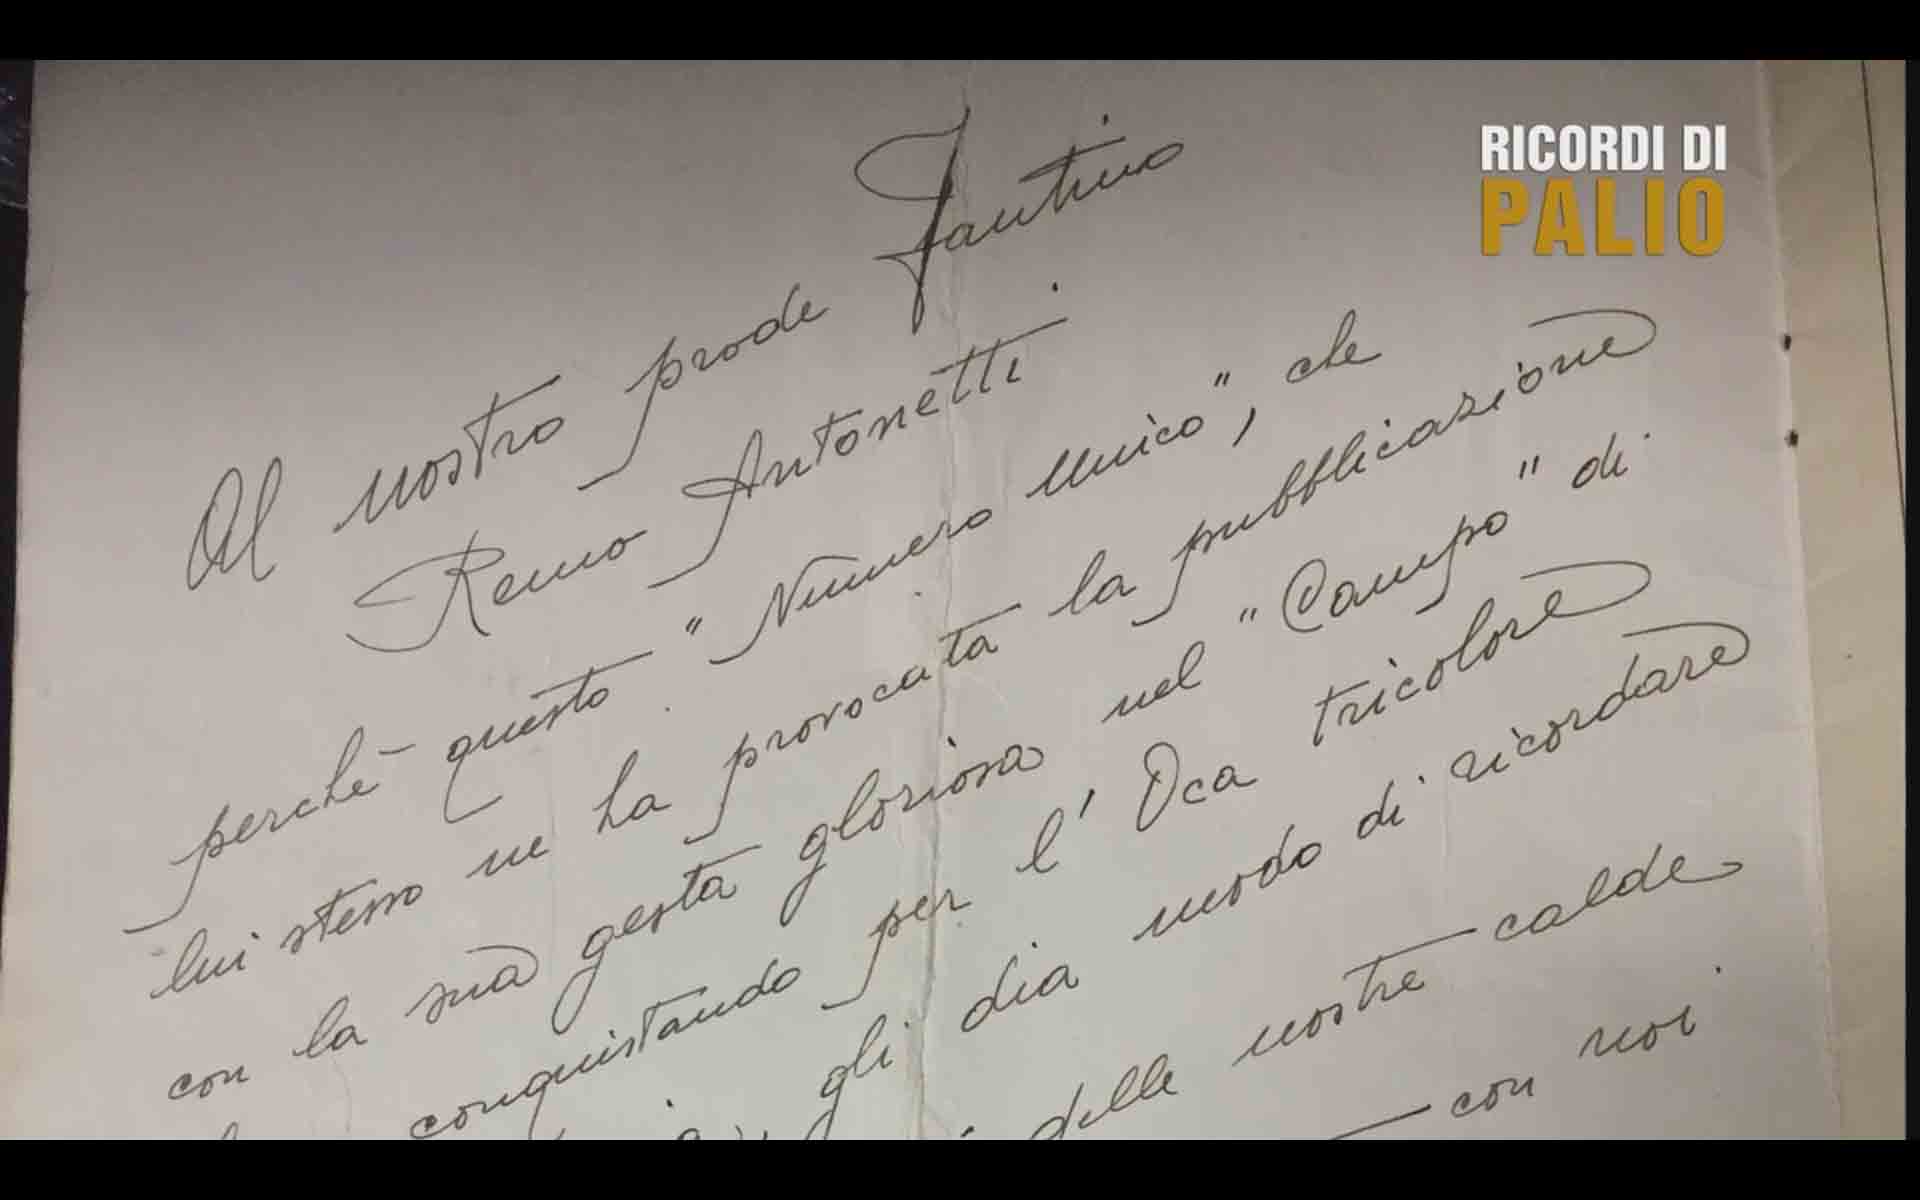 RICORDI DI
PALIO
Al nostro prode Fantino
Remo Antonetti
perchè questo "Numero Unico", che
lui stesso ne ha provocata la pubblicazione
con la sua gesta gloriosa nel "Campo" di
conquistando per l'Oca tricolore
gli dia modo di ricordare
delle nostre calde
con noi